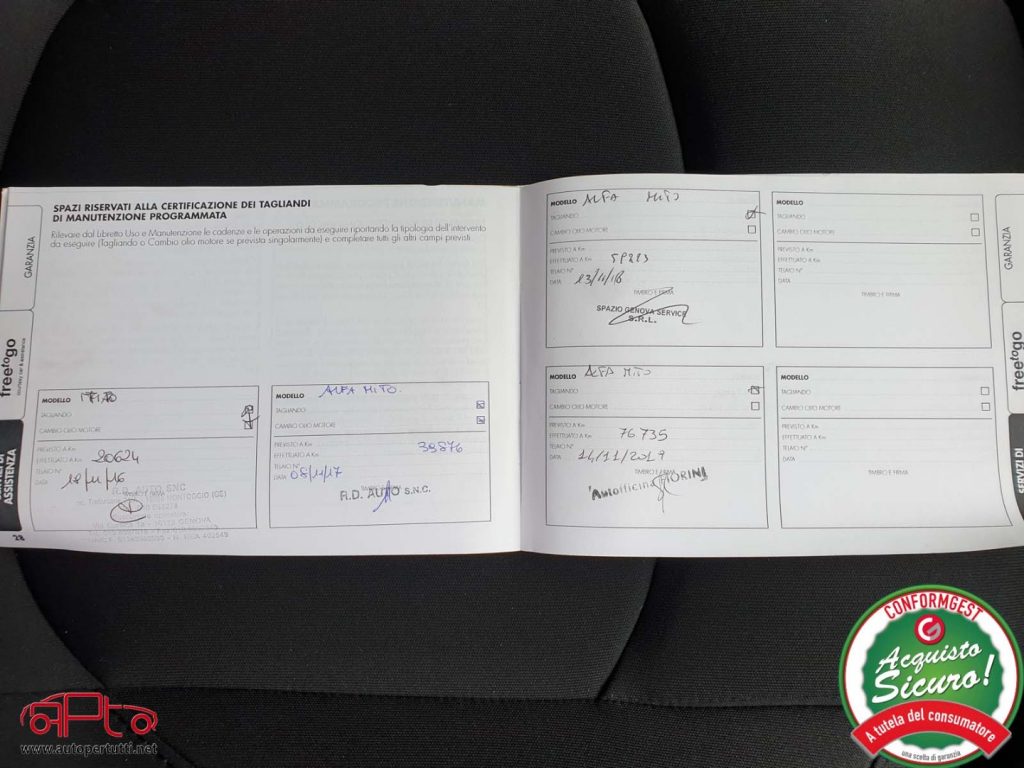 SPAZI RISERVATI ALLA CERTIFICAZIONE DEI TAGLIANDI
DI MANUTENZIONE PROGRAMMATA
Rilevare dal Libretto Uso e Manutenzione le cadenze e le operazioni da eseguire riportando la tipologia dell'intervento
da eseguire (Tagliando o Cambio olio motore se prevista singolarmente) e completare tutti gli altri campi previsti.
GARANZIA
freetogo
courtesy car & assistance
ASSISTENZA
28
MODELLO
TAGLIANDO
CAMBIO OLIO MOTORE
PREVISTO A Km
EFFETTUATO A Km 20624
TELAIO N°
DATA
R.D. AUTO SNC
MODELLO ALFA MITO
TAGLIANDO
CAMBIO OLIO MOTORE
PREVISTO A Km
EFFETTUATO A Km 39876
TELAIO N°
DATA 08/11/17
TIMBRO E FIRMA
R.D. AUTO S.N.C.
MODELLO ALFA MITO
TAGLIANDO
CAMBIO OLIO MOTORE
PREVISTO A Km
EFFETTUATO A Km
TELAIO N°
DATA
TIMBRO E FIRMA
SPAZIO GENOVA SERVICE
S.R.L.
MODELLO ALFA MITO
TAGLIANDO
CAMBIO OLIO MOTORE
PREVISTO A Km
EFFETTUATO A Km 76735
TELAIO N°
DATA 14/11/2019
TIMBRO E FIRMA
Autofficina FIORINI
MODELLO
TAGLIANDO
CAMBIO OLIO MOTORE
PREVISTO A Km
EFFETTUATO A Km
TELAIO N°
DATA
TIMBRO E FIRMA
MODELLO
TAGLIANDO
CAMBIO OLIO MOTORE
PREVISTO A Km
EFFETTUATO A Km
TELAIO N°
DATA
TIMBRO E FIRMA
GARANZIA
freetogo
SERVIZI DI
apto
www.autopertutti.net
CONFORMGEST
Acquisto
Sicuro!
A tutela del consumatore
una scelta di garanzia